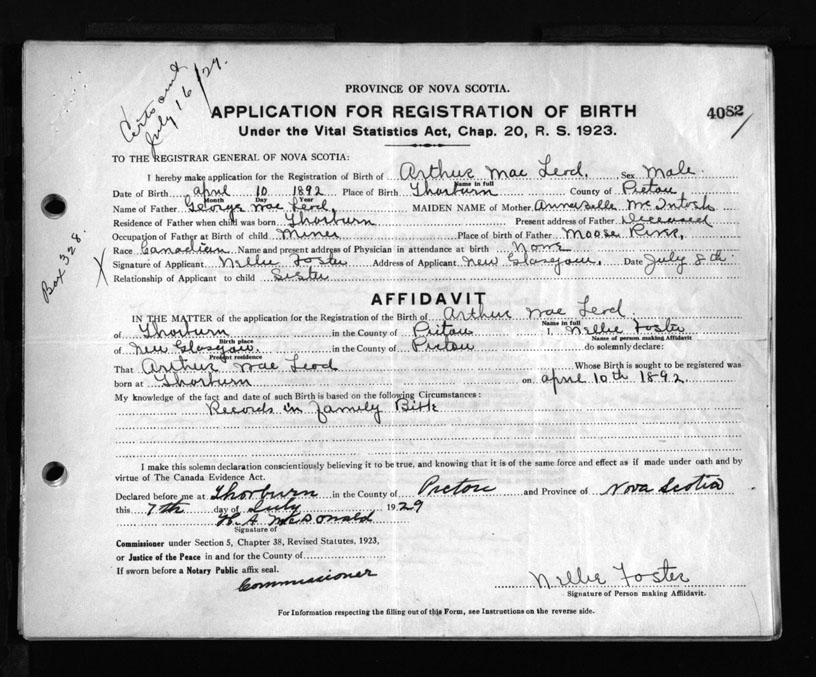 Certs sent
July 16/29.
PROVINCE OF NOVA SCOTIA.
APPLICATION FOR REGISTRATION OF BIRTH
4082
Under the Vital Statistics Act, Chap. 20, R. S. 1923.
TO THE REGISTRAR GENERAL OF NOVA SCOTIA:
I hereby make application for the Registration of Birth of Arthur Mac Leod. Sex Male.
Name in full
Date of Birth April 10 1892 Place of Birth Thorburn County of Pictou
Month Day Year
Name of Father George Mac Leod MAIDEN NAME of Mother Annabelle McIntosh
Residence of Father when child was born Thorburn Present address of Father Deceased
Occupation of Father at Birth of child Miner Place of birth of Father Moose River,
Race Canadian Name and present address of Physician in attendance at birth None
Signature of Applicant Nellie Foster Address of Applicant New Glasgow. Date July 8th
Relationship of Applicant to child Sister
Box 328. X
AFFIDAVIT
IN THE MATTER of the application for the Registration of the Birth of Arthur Mac Leod.
Name in full
of Thorburn in the County of Pictou I, Nellie Foster
Birth place Name of person making Affidavit
of New Glasgow. in the County of Pictou do solemnly declare:
Present residence
That Arthur Mac Leod Whose Birth is sought to be registered was
born at Thorburn on April 10th 1892.
My knowledge of the fact and date of such Birth is based on the following Circumstances:
Records in family Bible
I make this solemn declaration conscientiously believing it to be true, and knowing that it is of the same force and effect as if made under oath and by
virtue of The Canada Evidence Act.
Declared before me at Thorburn in the County of Pictou and Province of Nova Scotia
this 7th day of July 1929
H. A. McDonald
Signature of
Commissioner under Section 5, Chapter 38, Revised Statutes, 1923,
or Justice of the Peace in and for the County of
If sworn before a Notary Public affix seal.
Commissioner
Nellie Foster
Signature of Person making Affidavit.
For Information respecting the filling out of this Form, see Instructions on the reverse side.